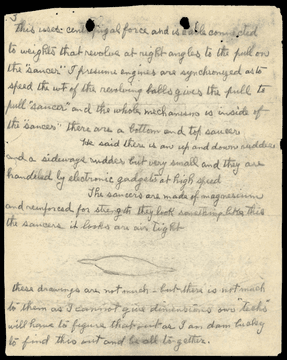 This uses centrifugal force and is cable connected
to weights that revolve at right angles to the pull on
the "saucer" I presume engines are synchronized as to
speed the wt of the revolving balls gives the pull to
pull "saucer" and the whole mechanism is inside of
the saucer" there are a bottom and top saucer
He said there is an up and down rudder
and a sideways rudder but very small and they are
handeled by electronic gadgets at high speed
The saucers are made of magnesium
and reinforced for strength they look something like this
the saucers it looks are air tight
these drawings are not much - but there is not much
to them as I cannot give dimensions our "techs"
will have to figure that out as I am dam lucky
to find this out and be all together.